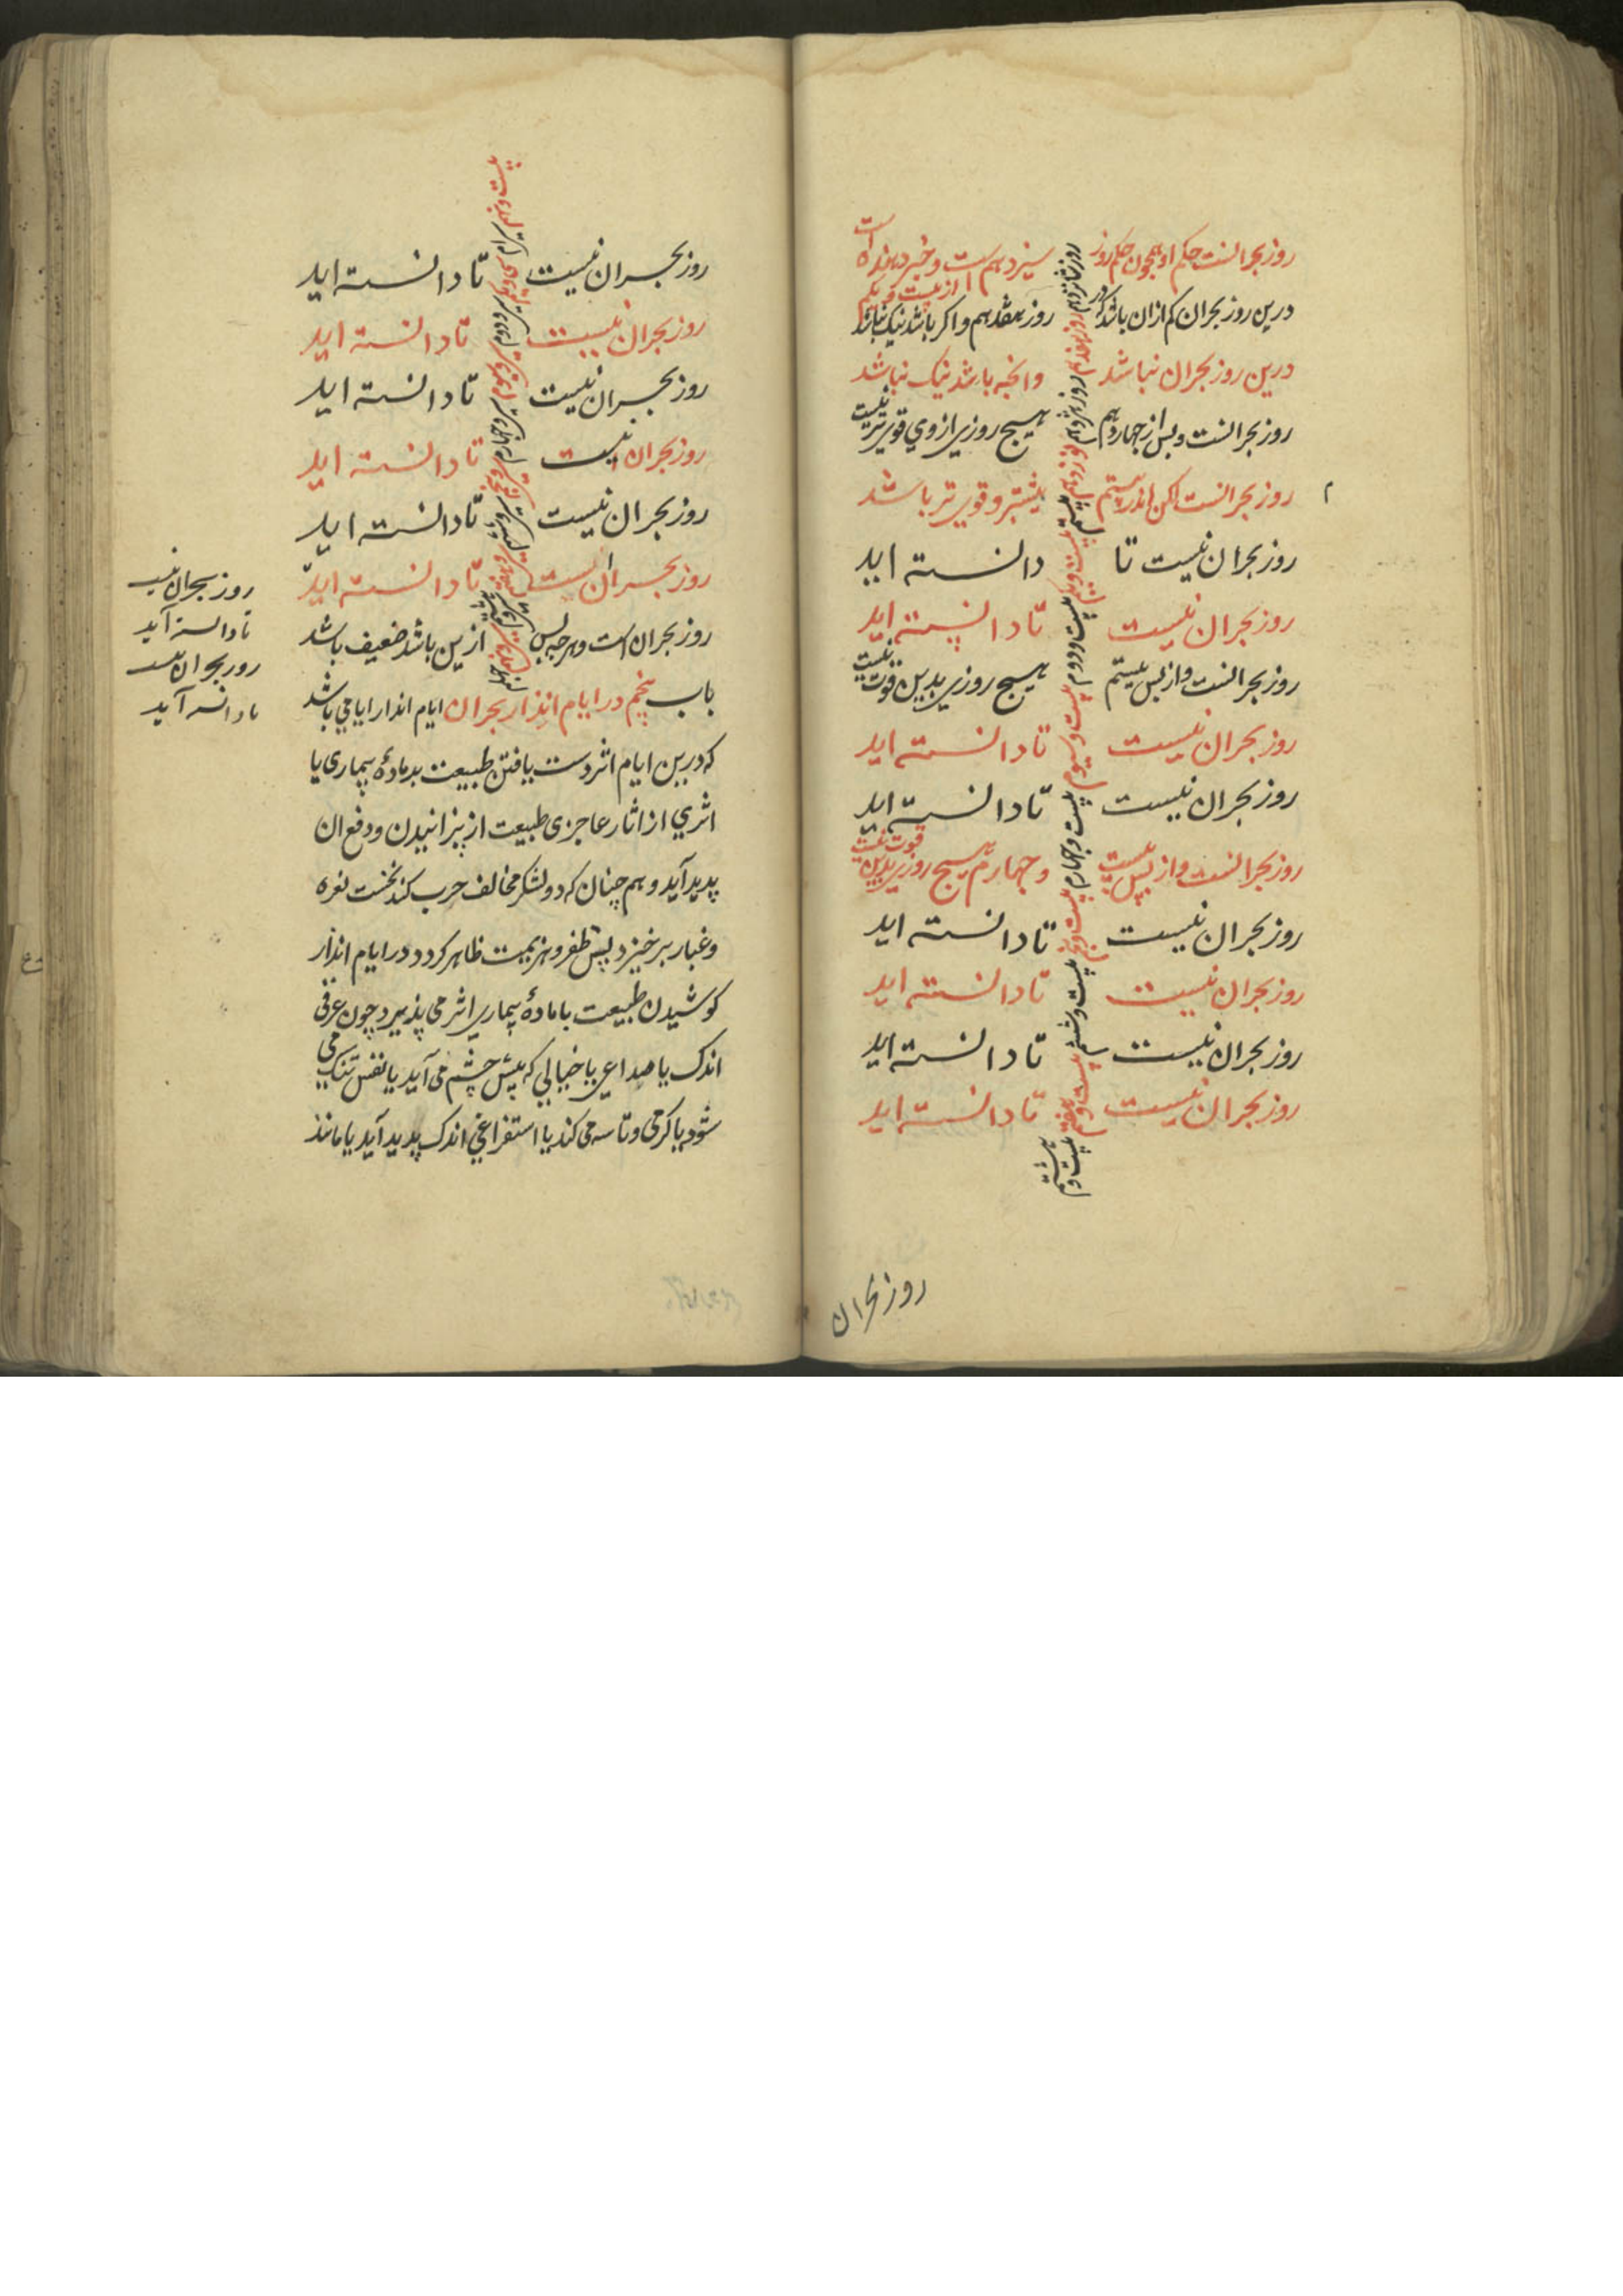 روز بحرانست حکم او همچون حکم روز سیزدهم است و خبر دهنده است از بیست و یکم
روز شانزدهم
درین روز بحران کم ازان باشد که در روز هفدهم و اکر باشد نیک نباشد
روز هفدهم
درین روز بحران نباشد وانچه باشد نیک نباشد
روز هژدهم
روز بحرانست و پس از چهاردهم هیچ روزی ازوی قوی تر نیست
نوزدهم
روز بحرانست لکن اندر بیستم بیشتر و قوی تر باشد
بیستم
روز بحران نیست تا دانسته اید
بیست و یکم
روز بحران نیست تا دانسته اید
بیست و دوم
روز بحرانست واز پس بیستم هیچ روزی بدین قوت نیست
بیست و سیوم
روز بحران نیست تا دانسته اید
بیست و چهارم
روز بحران نیست تا دانسته اید
بیست و پنجم
روز بحرانست واز پس بیست و چهارم هیچ روزی بدین قوت نیست
بیست و ششم
روز بحران نیست تا دانسته اید
بیست و هفتم
روز بحران نیست تا دانسته اید
بیست و هشتم
روز بحران نیست تا دانسته اید
روز بحران نیست تا دانسته اید
روز بحران
بیست و نهم
روز بحران نیست تا دانسته اید
سی ام
روز بحران نیست تا دانسته اید
سی و یکم
روز بحران نیست تا دانسته اید
سی و دوم
روز بحران نیست تا دانسته اید
سی و سیوم
روز بحران نیست تا دانسته اید
سی و چهارم
روز بحران نیست تا دانسته اید
روز بحران است و هرچه پس ازین باشد ضعیف باشد
باب پنجم در ایام انذار بحران ایام انذار ایامی باشد
که درین ایام اثر دست یافتن طبیعت بر مادهٔ بیماری یا
اثری از اثار عاجزی طبیعت از پزانیدن و دفع ان
پدید آید و هم چنان که دو لشکر مخالف حرب کنند نخست نعره
و غبار برخیزد پس ظفر و هزیمت ظاهر کردد در ایام انذار
کوشیدن طبیعت با مادهٔ بیماری اثر می پذیرد چون عرقی
اندک یا صداعی یا خیالی که پیش چشم می آید یا نفس تنک می
شود یا کرمی و تاسه می کند یا استفراغی اندک پدید آید یا مانند
روز بحران نیست
تا دانسته آید
روز بحران نیست
تا دانسته آید